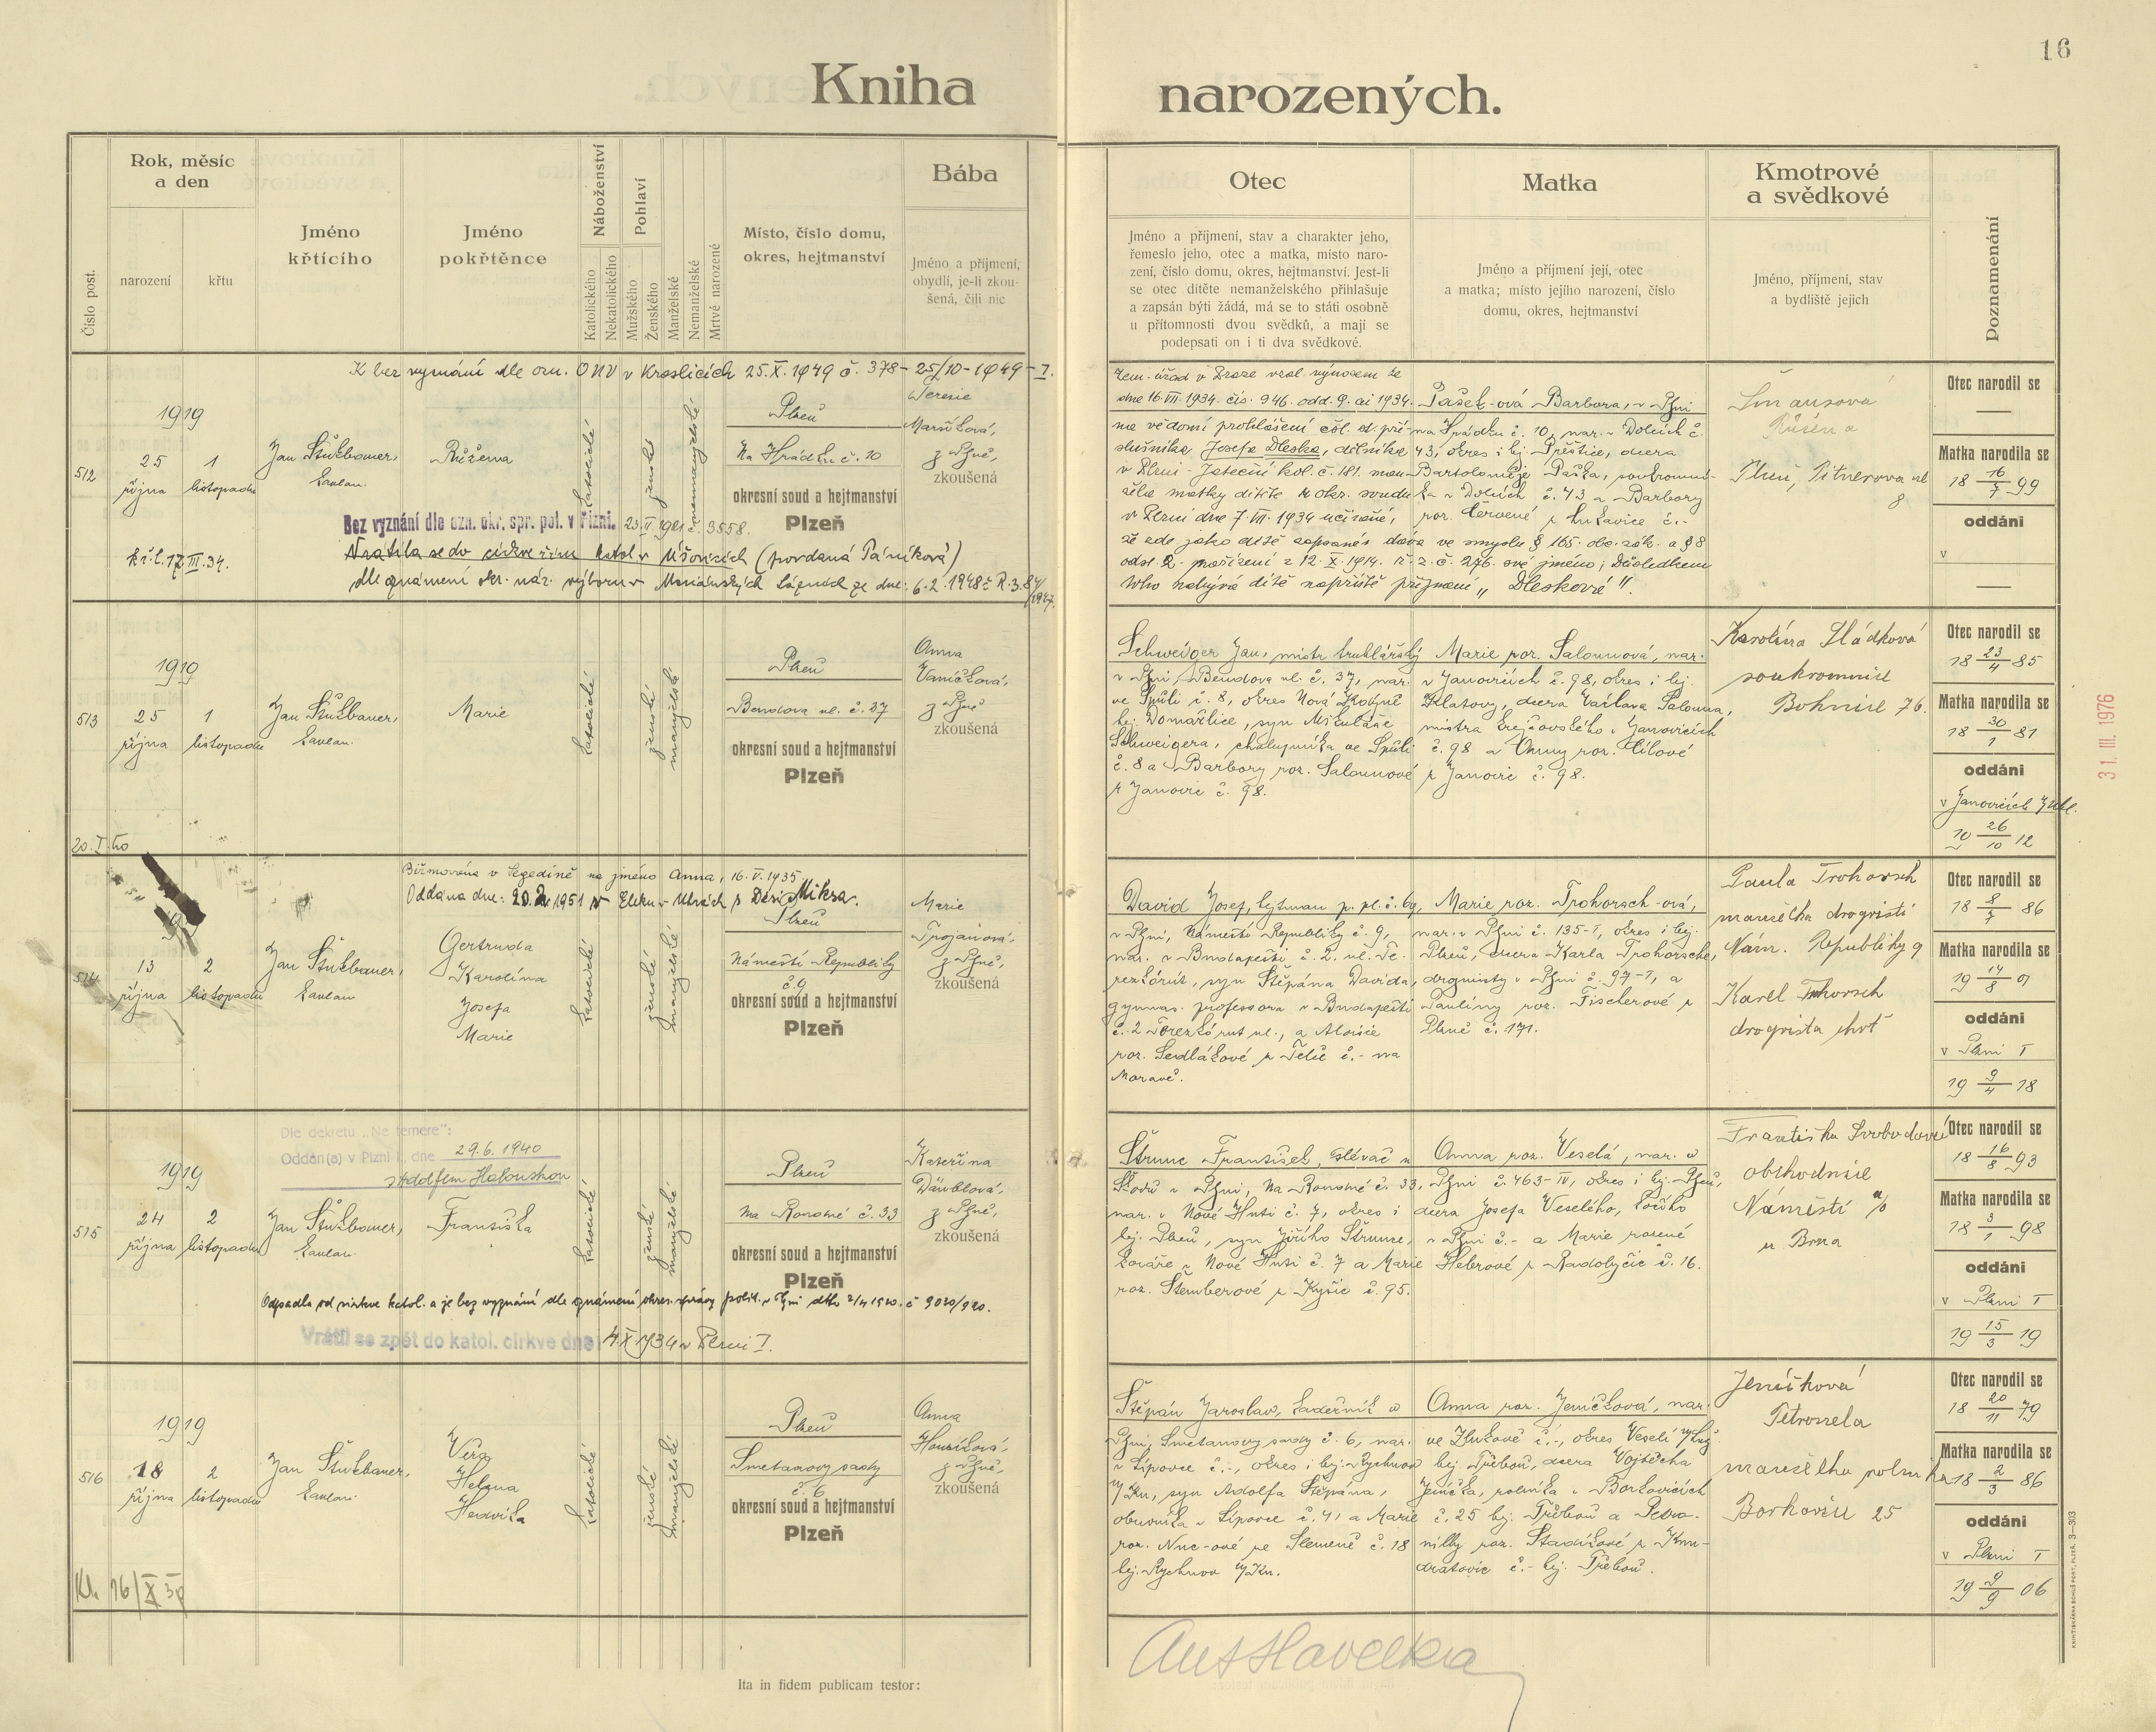 16
Kniha narozených.
Číslo post.
Rok, měsíc
a den
narození
křtu
Jméno
křtícího
Jméno
pokřtěnce
Náboženství
Katolického
Nekatolického
Pohlaví
Mužského
Ženského
Manželské
Nemanželské
Mrtvě narozené
Místo, číslo domu,
okres, hejtmanství
Bába
Jméno a příjmení,
obydlí, je-li zkou-
šená, čili nic
Otec
Jméno a příjmení, stav a charakter jeho,
řemeslo jeho, otec a matka, místo naro-
zení, číslo domu, okres, hejtmanství. Jest-li
se otec dítěte nemanželského přihlašuje
a zapsán býti žádá, má se to státi osobně
u přítomnosti dvou svědků, a mají se
podepsati on i ti dva svědkové.
Matka
Jméno a příjmení její, otec
a matka; místo jejího narození, číslo
domu, okres, hejtmanství
Kmotrové
a svědkové
Jméno, příjmení, stav
a bydliště jejich
Poznamenání
K bez vyznání dle ozn. ONV v Kraslicích 25.X.1949 č. 378-25/10-1949-I.
512
1919
25
října
1
listopadu
Jan Stužbauer,
kaplan.
Růžena
katolické
ženské
nemanželské
Plzeň
Na Hrádku č. 10
okresní soud a hejtmanství
Plzeň
Terezie
z Plzně,
zkoušená
Bez vyznání dle ozn. okr. spr. pol. v Plzni. 23.II.1921 č. 3558.
Kř.l. 17.III.34.
Vrátila se do církve řím. katol. v Úšovicích (provdaná Páníková)
dle oznámení okr. nár. výboru v Mariánských Lázních ze dne: 6.2.1948 č. R.3.84/1947.
Zem. úřad v Praze vzal výnosem ze
dne 16.VII.1934. čís. 946. odd. 9. ai 1934.
na vědomí prohlášení čsl. st. pří-
slušníka, Josefa Dleska, dělníka
v Plzni - Jateční kol. č. 181. man-
žela matky dítěte u okr. soudu
v Plzni dne 7.VII.1934 učiněné,
že zde jako dítě zapsané dává ve smyslu § 165. obč. zák. a § 8
odst. 2. nařízení z 12.X.1914. ř. z. č. 276. své jméno; Důsledkem
toho nabývá dítě napříště příjmení „Dlesková".
Pašek-ová Barbora, v Plzni
na Hrádku č. 10, nar. v Dolcích č.
43, okres i hej. Přeštice, dcera
Bartoloměje Paška, soukromní-
ka v Dolcích č. 43 a Barbory
roz. Červené z Lukavice č.-
Šmausová
Růžena
Plzeň, Pitnerova ul
8
Otec narodil se
Matka narodila se
18 16/7 99
oddáni
v
513
1919
25
října
1
listopadu
Jan Stužbauer,
kaplan.
Marie
katolické
ženské
manželské
Plzeň
Bendova ul. č. 37
okresní soud a hejtmanství
Plzeň
Anna
Vaníčková,
z Plzně
zkoušená
Schweiger Jan, mistr truhlářský
v Plzni, Bendova ul. č. 37, nar.
ve Spůli č. 8, okres Nová Kdyně
hej. Domažlice, syn Mikuláše
Schweigera, chalupníka ve Spůli
č. 8 a Barbory roz. Salounové
z Janovic č. 98.
Marie roz. Salounová, nar.
v Janovicích č. 98, okres i hej.
Klatovy, dcera Václava Salouna,
mistra krejčovského v Janovicích
č. 98 a Anny roz. Cibové
z Janovic č. 98.
Karolina Sládková
soukromnice
Bohnice 76.
Otec narodil se
18 23/4 85
Matka narodila se
18 30/1 81
oddáni
v Janovicích
19 26/10 12
31. III. 1976
20.I.40
Biřmována v Segedíně na jméno Anna, 16.V.1935
514
13
října
2
listopadu
Jan Stužbauer,
kaplan
Gertruda
Karolina
Josefa
Marie
katolické
ženské
manželské
Plzeň
Náměstí Republiky
č. 9
okresní soud a hejtmanství
Plzeň
Marie
Trojanová,
z Plzně,
zkoušená
David Josef, hejtman p. pl. č. 69,
v Plzni, Náměstí Republiky č. 9,
nar. v Budapešti č. 2. ul. Te-
rezkörút, syn Štěpána Davida,
gymnas. professora v Budapešti
č. 2 Terezkörut ul., a Aloisie
roz. Sedlákové z Telče č.- na
Moravě.
Marie roz. Trohorsch-ová,
nar. v Plzni č. 135-I, okres i hej.
Plzeň, dcera Karla Trohorsche,
droguisty v Plzni č. 97-I, a
Pauliny roz. Fischerové z
Plzně č. 171.
Paula Trohorsch
manželka drogristi
Nám. Republiky 9
Karel Trohorsch
drogrista
Otec narodil se
18 8/7 86
Matka narodila se
19 14/8 01
oddáni
v Plzni I
19 9/4 18
Dle dekretu „Ne temere":
Oddán(a) v Plzni I., dne 29.6.1940
515
1919
24
října
2
listopadu
Jan Stužbauer,
kaplan.
Františka
katolické
ženské
manželské
Plzeň
Na Roudné č. 33
okresní soud a hejtmanství
Plzeň
Kateřina
Däublová,
z Plzně,
zkoušená
Odpadla od církve katol. a je bez vyznání dle oznámení okres. správy polit. v Plzni dtto 2/4 1920. č 9020/920.
Vrátil se zpět do katol. církve dne 4.X.1934 v Plzni I.
Štrunc František, slévač u
Škodů v Plzni, Na Roudné č. 33,
nar. v Nové Huti č. 7, okres i
hej. Plzeň, syn Jiřího Štrunce,
kováře v Nové Huti č. 7 a Marie
roz. Štemberové z Kyšic č. 95.
Anna roz. Veselá, nar. v
Plzni č. 463-IV, okres i hej. Plzeň,
dcera Josefa Veselého, kočího
v Plzni č.- a Marie rozené
Heberové z Radobyčic č. 16.
Františka Svobodová
obchodnice
Náměstí
u Brna
Otec narodil se
18 16/8 93
Matka narodila se
18 3/1 98
oddáni
v Plzni I
19 15/3 19
516
1919
18
října
2
listopadu
Jan Stužbauer,
kaplan.
Věra
Helena
Hedvika
katolické
ženské
manželské
Plzeň
Smetanovy sady
č. 6
okresní soud a hejtmanství
Plzeň
Anna
z Plzně,
zkoušená
Štěpán Jaroslav, kadeřník v
Plzni, Smetanovy sady č. 6, nar.
v Lipovce č.-, okres i hej. Rychnov
n/Kn., syn Adolfa Štěpána,
obuvníka v Lipovce č. 41 a Marie
roz. Nuc-ové ze Slemene č. 18
hej. Rychnov n/Kn.
Anna roz. Jeníčková, nar.
ve Zlukově č.-, okres Veselí n/Luž.
hej. Třeboň, dcera Vojtěcha
Jeníčka, rolníka v Borkovicích
č. 25 hej. Třeboň a Petro-
nilly roz. Stadíkové z Kun-
dratovic č.- hej. Třeboň.
Jeníčková
Petronela
manželka rolníka
Borkovice 25
Otec narodil se
18 20/11 79
Matka narodila se
18 2/3 86
oddáni
v Plzni I
19 9/9 06
Ita in fidem publicam testor:
Ant Havelka
KNIHTISKÁRNA BOHUŠ PORT, PLZEŇ. 3—303